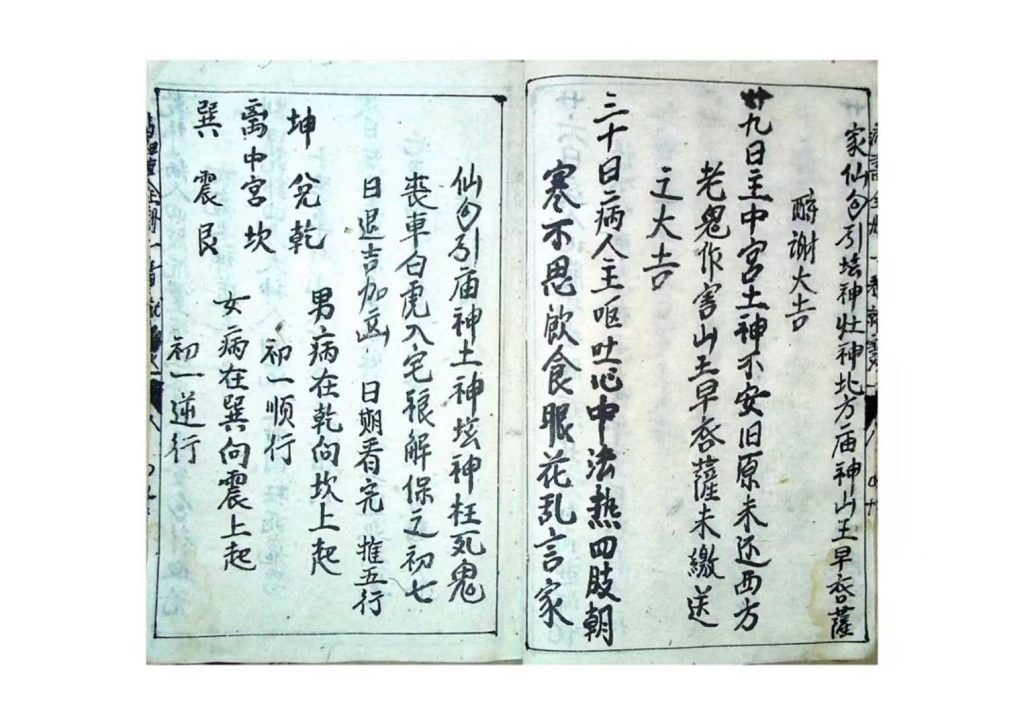 家仙勾引坛神壮神北方庙神山王早唘薩
酧谢大吉
廿九日主中宮土神不安旧原未还西方
老鬼作害山王早唘薩未繳送
之大吉
三十日病人主呕吐心中法热四肢朝
寒不思飲食眼花乱言家
仙勾引庙神土神坛神枉死鬼
丧車白虎入宅禳解保之初七
日退吉加凶 日期看完 推五行
坤 兌乾 男病在乾向坎上起
离中宮坎 初一顺行
巽 震艮 女病在巽向震上起
初一逆行